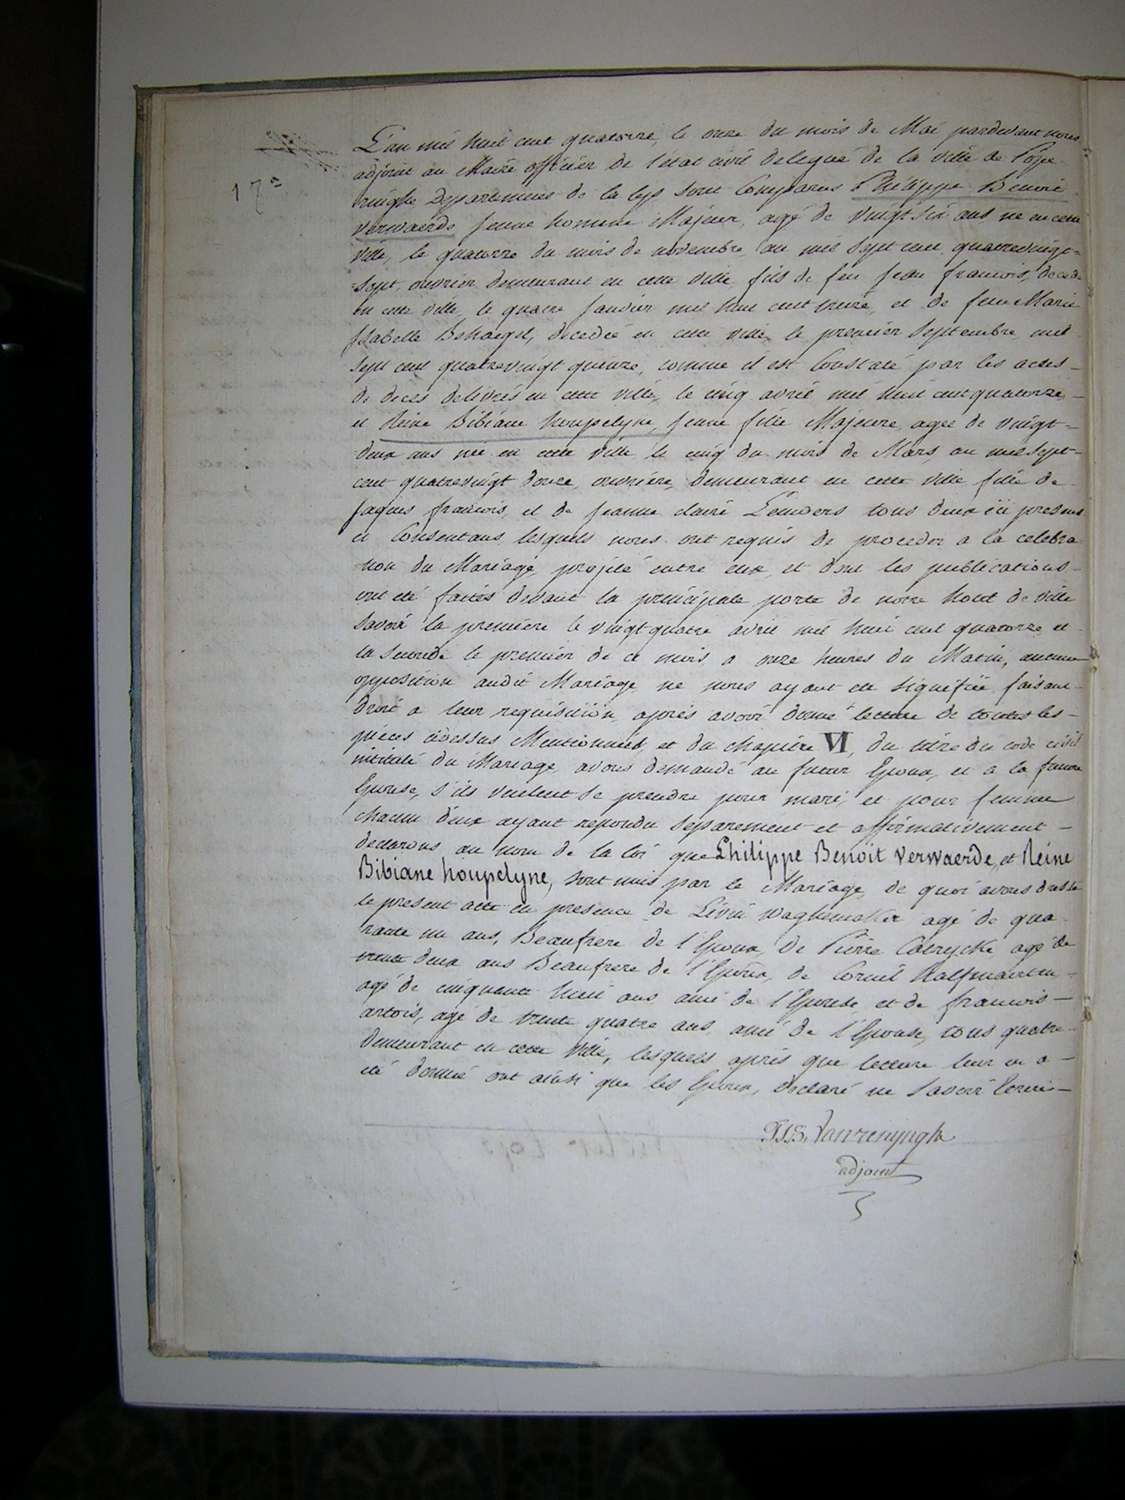 17e
L'an mil huit cent quatorze, le onze du mois de Mai pardevant nous
adjoint au Maire officier de l'état civil delegué de la ville de Pope-
ringhe Departement de la lys sont Comparus Philippe Benoit
Verwaerde jeune homme Majeur, agé de vingt six ans né en cette
ville, le quatorze du mois de novembre an mil sept cent quatrevingt-
sept, ouvrier demeurant en cette ville fils de feu jean francois, decedé
en cette ville le quatre janvier mil huit cent treize, et de feue Marie
Isabelle Behaegel, decedée en cette ville le premier septembre mil
sept cent quatrevingt quinze, comme il est Constaté par les actes
de deces delivrés en cette ville, le cinq avril mil huit cent quatorze
et Reine Bibiane houpelyne, jeune fille Majeure, agée de vingt-
deux ans née en cette ville le cinq du mois de Mars, an mil sept-
cent quatrevingt douze, ouvrière, demeurant en cette ville fille de
jaques francois, et de jeanne claire tous deux ici presens
et Consentans, lesquels nous ont requis de proceder a la celebra
tion du Mariage projeté entre eux, et dont les publications
ont été faites devant la principale porte de notre hotel de ville
savoir la première le vingt quatre avril mil huit cent quatorze et
la seconde le premier de ce mois a onze heures du Matin, aucune
opposition audit Mariage ne nous ayant été signifiée faisant
droit a leur requisition, après avoir donné lecture de toutes les
pièces cidessus Mentionnées, et du chapitre VI, du titre du code civil
intitulé du Mariage, avons demandé au futur Epoux, et a la future
Epouse, s'ils veulent se prendre pour mari, et pour femme
chacun d'eux ayant repondu separement et affirmativement
declarons au nom de la loi que Philippe Benoit Verwaerde, et Reine
Bibiane houpelyne, sont unis par le Mariage, de quoi avons dressé
le present acte en presence de Livin Waghemaker agé de qua
rante un ans, Beaufrere de l'Epoux, de Pierre agé de
trente deux ans Beaufrere de l'Epoux, de Corneil
agé de cinquante huit ans ami de l'Epouse, et de francois
artois, agé de trente quatre ans ami de l'Epouse, tous quatre
demeurant en cette ville, lesquels après que lecture leur en a
été donnée ont ainsi que les Epoux, declaré ne savoir Ecrire
Vanrenynghe
adjoint